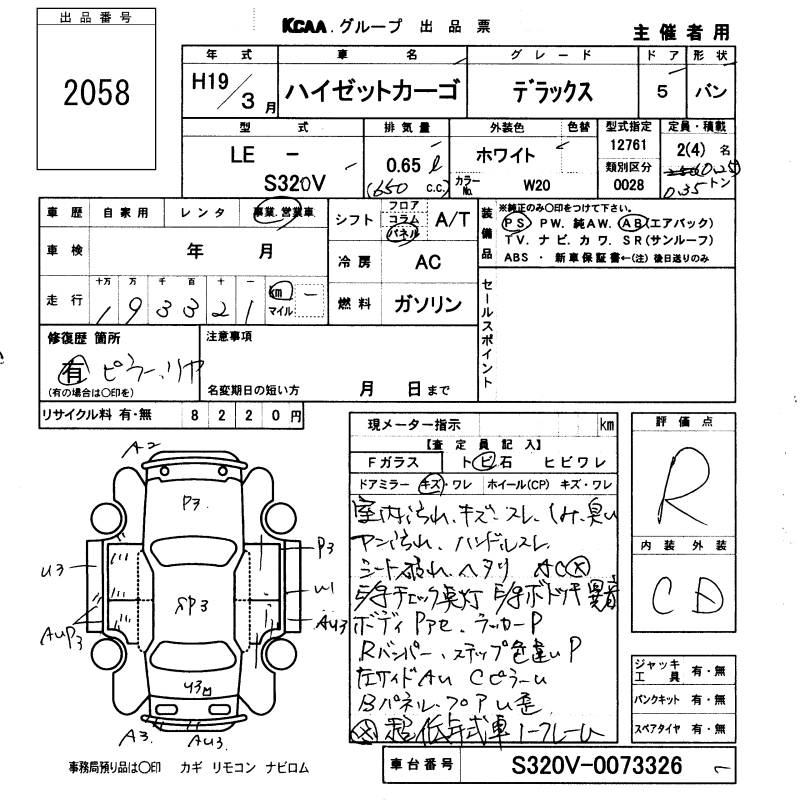 KCAA.グループ 出品票
主催者用
出品番号
2058
年式 車名 グレード ドア 形状
H19/3月 ハイゼットカーゴ デラックス 5 バン
型式 排気量 外装色 色替 型式指定 定員・積載
LE - S320V 0.65ℓ (650 c.c.) ホワイト 12761 2(4)名
カラーNo. W20 類別区分 0028 0.35トン
車歴 自家用 レンタ 事業.営業車
シフト フロア コラム パネル A/T
装備品 ※純正のみ〇印をつけて下さい。
PS PW. 純AW. AB(エアバック)
TV. ナビ. カワ. SR(サンルーフ)
ABS ・ 新車保証書←(注) 後日送りのみ
車検 年 月
冷房 AC
走行 十万 万 千 百 十 一
193321 km マイル
燃料 ガソリン
セールスポイント
修復歴 箇所
有 ピラー、リヤ
(有の場合は〇印を)
注意事項
名変期日の短い方 月 日まで
リサイクル料 有・無 8220円
現メーター指示 km
【査定員記入】
Fガラス トビ石 ヒビワレ
ドアミラー キズ・ワレ ホイール(CP) キズ・ワレ
室内汚れ、キズ、スレ、しみ、臭い
ハンドルスレ
シート破れ ヘタリ AC
チェック点灯
ボディ ラッカーP
Rバンパー、ステップ色違いP
左サイドAU CピラーU
Bパネル、フロアU歪
超低年式車
評価点
R
内装 外装
C D
ジャッキ工具 有・無
パンクキット 有・無
スペアタイヤ 有・無
A2
P3
U3
P3
U1
AUP3
AU3
U3
A3.
AU3
事務局預り品は〇印 カギ リモコン ナビロム
車台番号 S320V-0073326